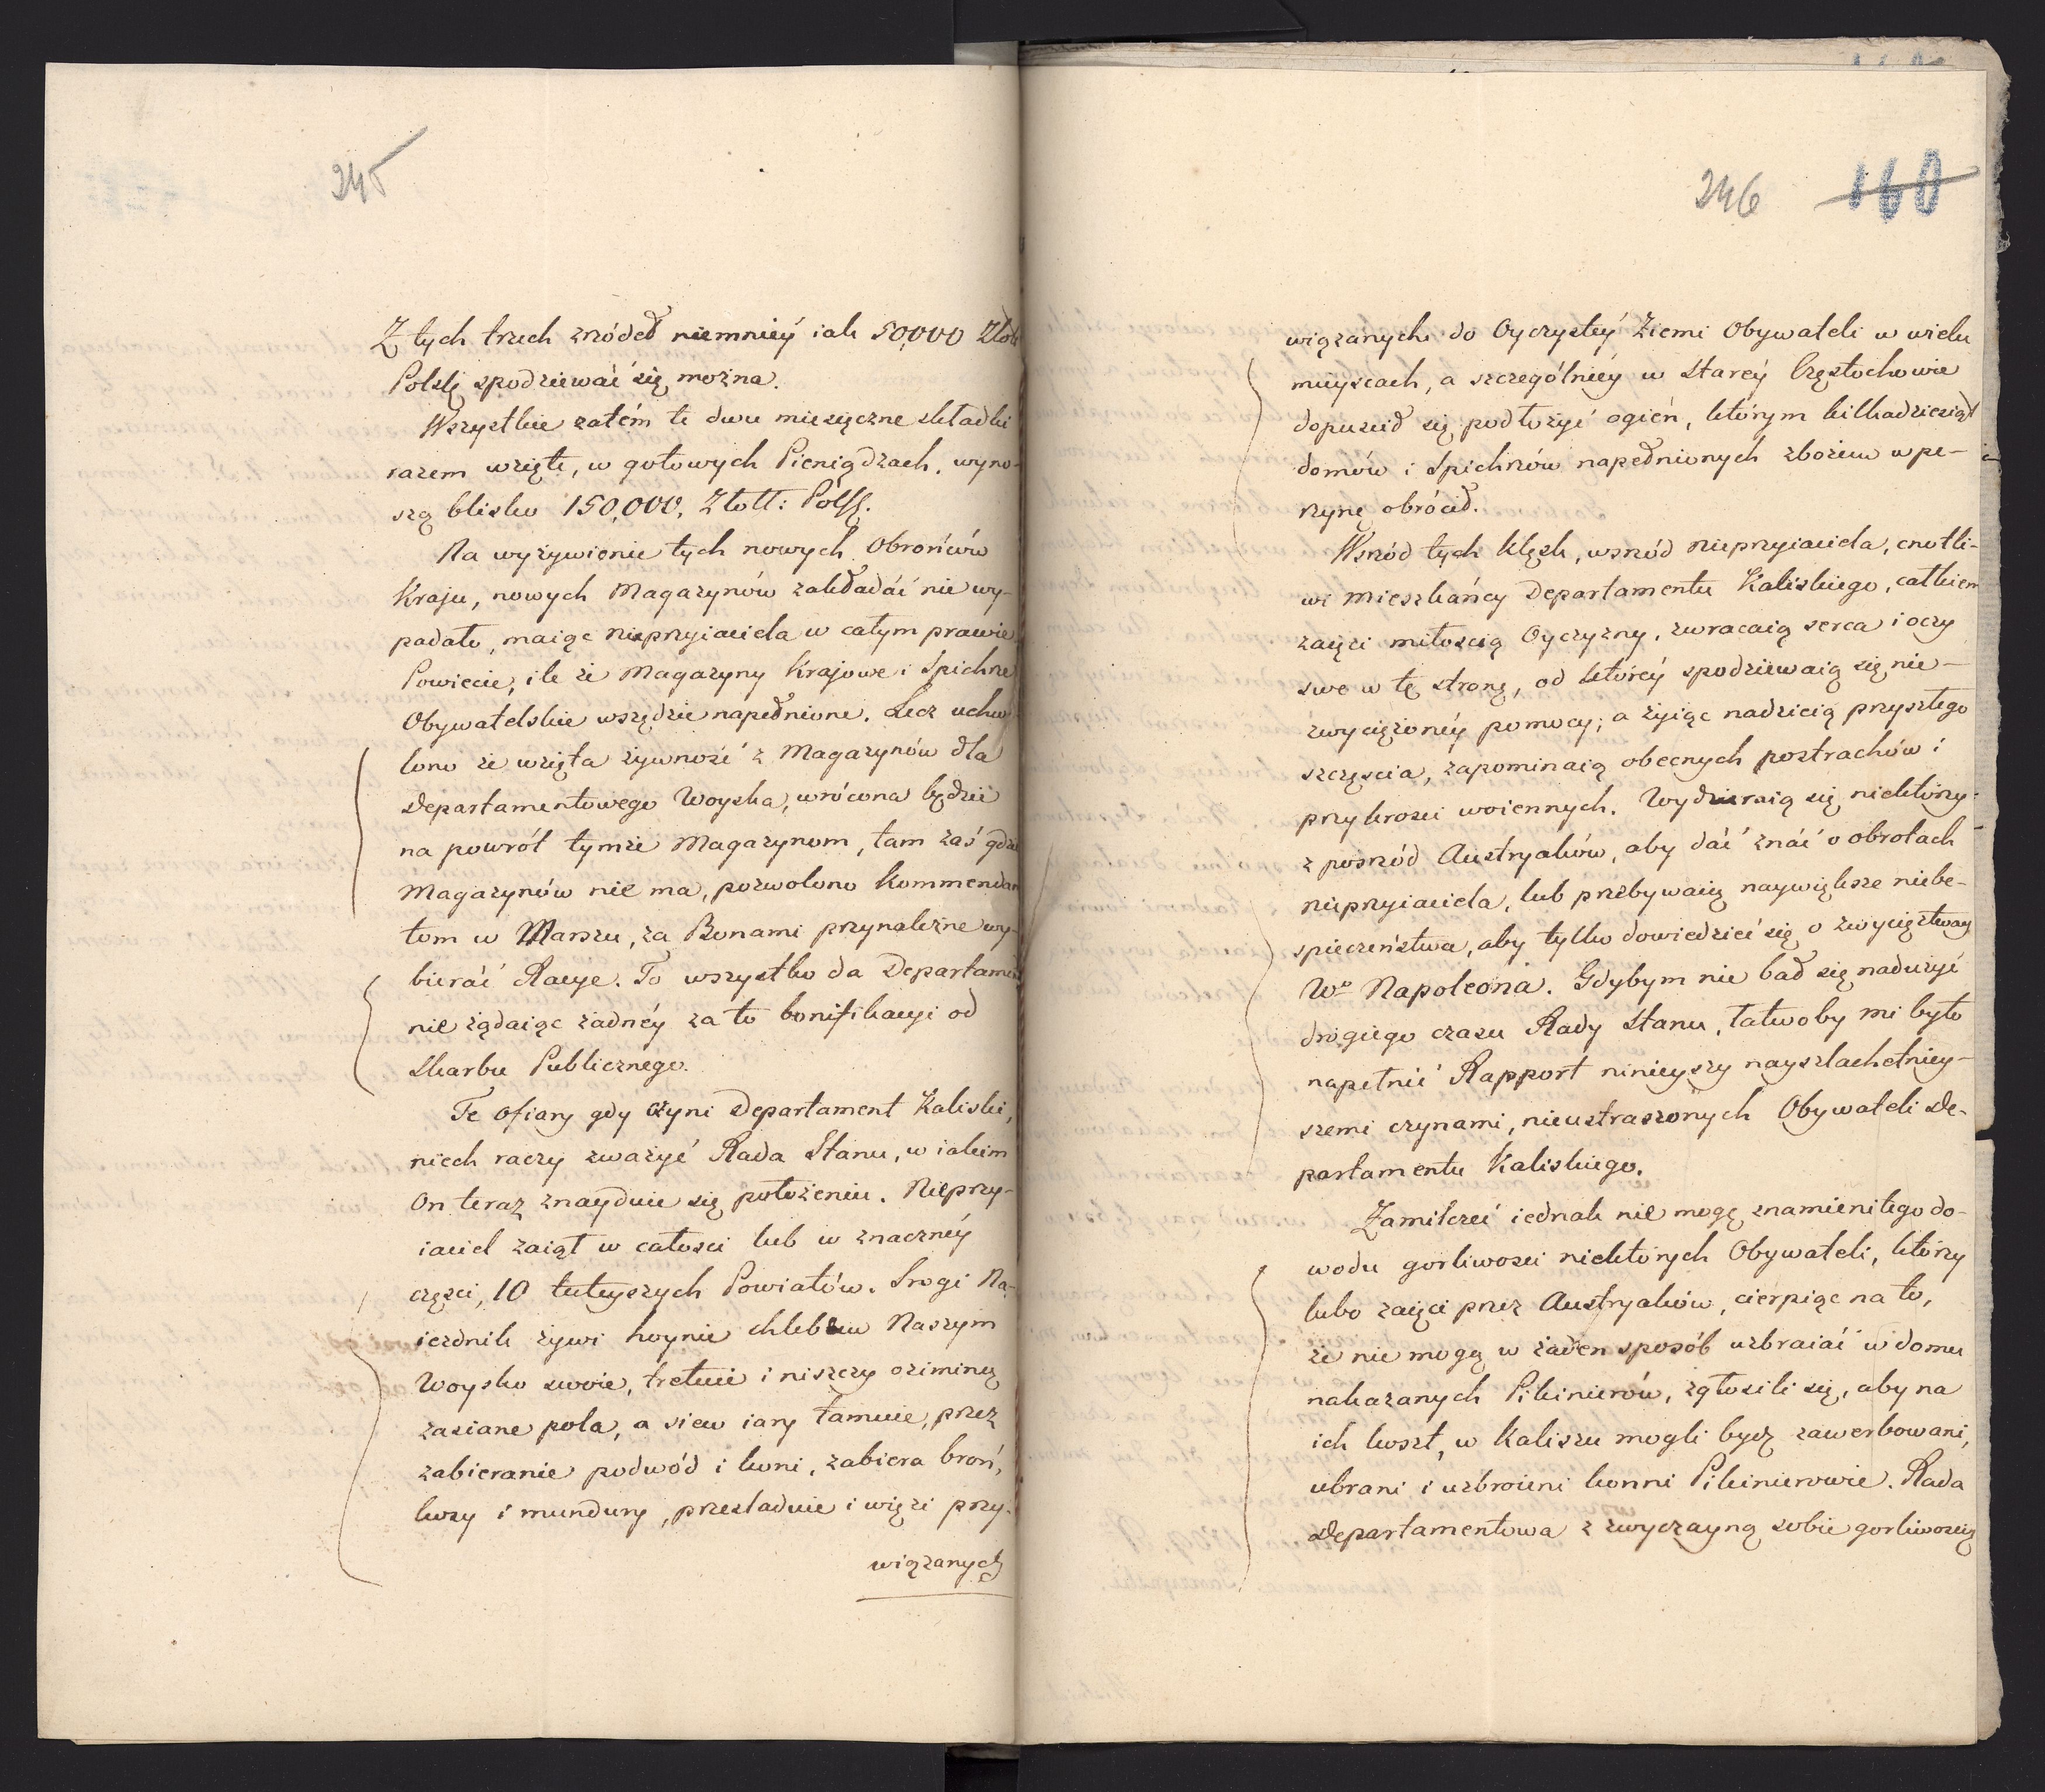 245
Z tych trzech zródeł niemniéy iak 50,000 Złot
Polsk spodziewać się można.
Wszystkie zatém te dwu miesięczne składki
razem wzięte, w gotowych Pieniądzach, wyno-
szą blisko 150,000, Złott: Polsk.
Na wyżywienie tych nowych Obrońców
Kraju, nowych Magazynów zakładać nie wy-
padało, maiąc nieprzyiaciela w całym prawie
Powiecie, ile że Magazyny Krajowe i Spichrze
Obywatelskie wszędzie napełnione. Lecz uchwa
lono że wzięta żywność z Magazynów dla
Departamentowego Woyska, wrócona będzie
na powrót tymże Magazynom, tam zaś gdzie
Magazynów nie ma, pozwolono Kommendan
tom w Marszu, za Bonami przynależne wy-
bierać Racye. To wszystko da Departament
nie żądaiąc żadnéy za to bonifikacyi od
Skarbu Publicznego.
Te ofiary gdy czyni Departament Kaliski,
niech raczy zważyć Rada Stanu, w iakim
On teraz znayduie się położeniu. Nieprzy-
iaciel zaiął w całosci lub w znacznéy
częsci, 10 tuteyszych Powiatów. Srogi Na-
iezdnik żywi hoynie chlebem Naszym
Woysko swoie, tratuie i niszczy oziminą
zasiane pola, a siew iary tamuie, przez
zabieranie podwód i koni, zabiera broń,
kosy i mundury, przesladuie i więzi przy-
wiązanych
246 160
wiązanych do Oyczystéy Ziemi Obywateli w wielu
mieyscach, a szczególniéy w Staréy Częstochowie
dopuscił się podłożyć ogień, którym kilkadziesiąt
domów i Spichrzów napełnionych zbożem w pe-
rzynę obrócił.
Wsród tych klęsk, wsród nieprzyiaciela, cnotli-
wi Mieszkańcy Departamentu Kaliskiego, całkiem
zaięci miłoscią Oyczyzny, zwracaią serca i oczy
swe w tę stronę, od któréy spodziewaią się nie-
zwyciężonéy pomocy; a żyiąc nadzieią przyszłego
szczęscia, zapominaią obecnych postrachów i
przykrosci woiennych. Wydzieraią się niektórzy
z posrzód Austryaków, aby dać znać o obrotach
nieprzyiaciela, lub przebywaią naywiększe niebe-
spieczeństwa, aby tylko dowiedzieć się o zwycięztwach
Wo Napoleona. Gdybym nie bał się nadużyć
drogiego czasu Rady Stanu, łatwoby mi było
napełnić Rapport ninieyszy nayszlachetniey-
szemi czynami, nieustraszonych Obywateli De-
partamentu Kaliskiego.
Zamilczeć iednak nie mogę znamienitego do-
wodu gorliwosci niektórych Obywateli, którzy
lubo zaięci przez Austryaków, cierpiąc na to,
że nie mogą w żaden sposób uzbraiać w domu
nakazanych Pikinierów, zgłosili się, aby na
ich koszt, w Kaliszu mogli bydz zawerbowani,
ubrani i uzbroieni konni Pikinierowie. Rada
Departamentowa z zwyczayną sobie gorliwoscią